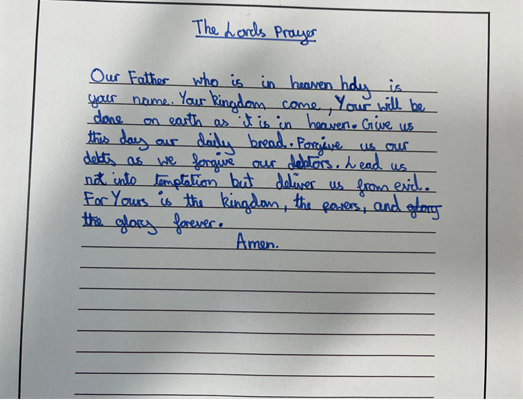 The Lords Prayer
Our Father who is in heaven holy is
your name. Your kingdom come, Your will be
done on earth as it is in heaven. Give us
this day our daily bread. Forgive us our
debts as we forgive our debtors. Lead us
not into temptation but deliver us from evil.
For Yours is the kingdom, the powers, and glory
the glory forever.
Amen.